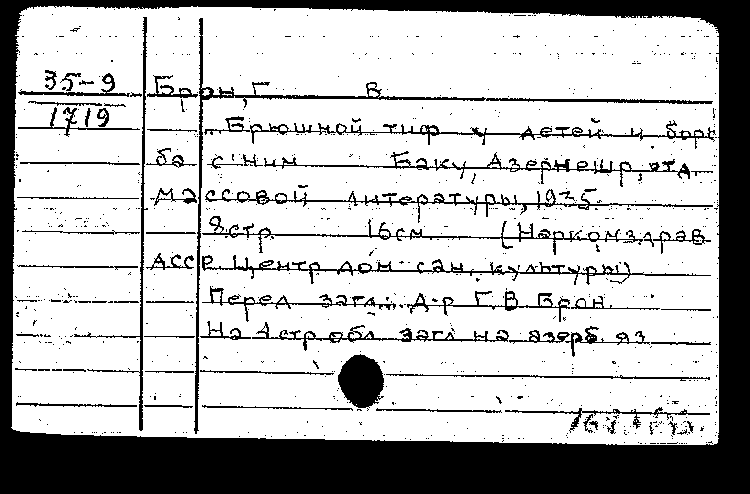 35-9
1719
Брон, Г В
Брюшной тиф у детей и борь
ба с ним Баку, Азернешр, отд.
массовой литературы, 1935.
8стр. 16см (Наркомздрав
АССР. Центр дом сан. культуры)
Перед загл.: Д-р Г. В. Брон.
На 4 стр обл загл на азерб. яз